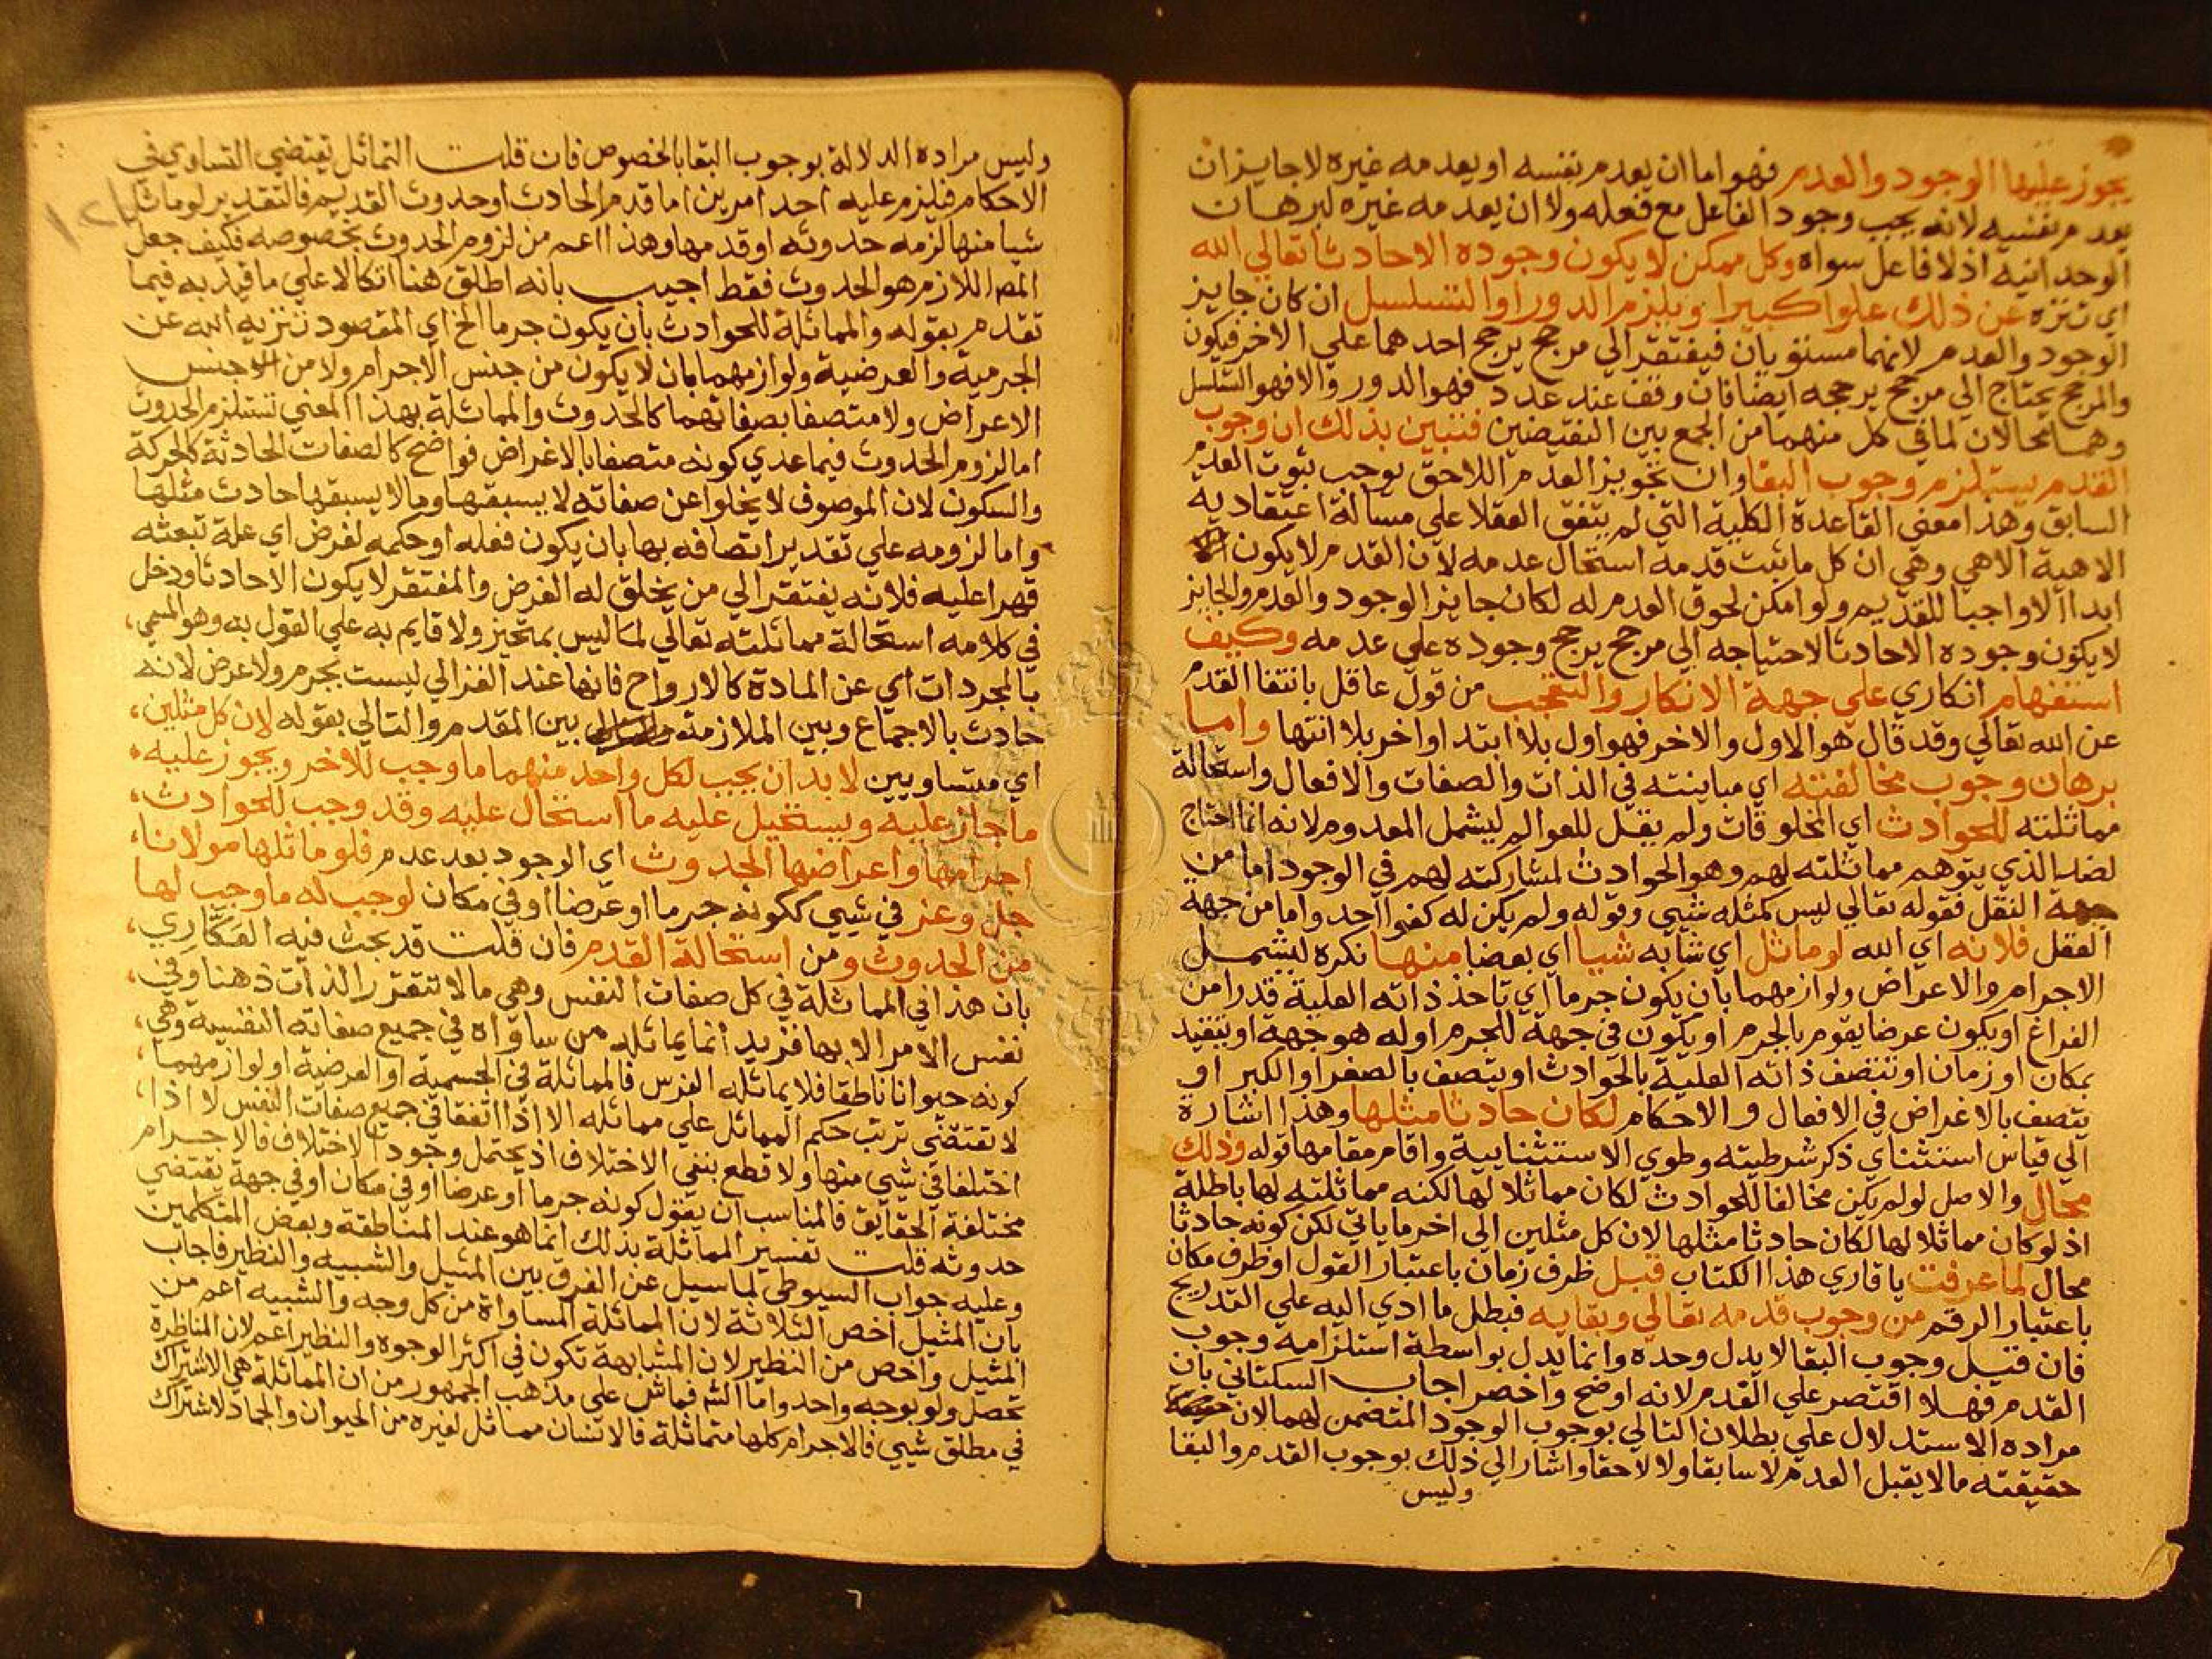 يجوز عليها الوجود والعدم فهو اما ان يعدم بنفسه او يعدمه غيره لا جايز ان
يعدم بنفسه لانه يجب وجود الفاعل مع فعله ولا ان يعدمه غيره لبرهان
الوحدانية اذ لا فاعل سواه وكل ممكن لا يكون وجوده الا حادثا تعالي الله
اي تنزه عن ذلك علوا كبيرا ويلزم الدور او التسلسل ان كان جايز
الوجود والعدم لانهما مستويان فيفتقر الي مرجح يرجح احدهما علي الاخر فيكون
والمرجح يحتاج الي مرجح يرجحه ايضا فان وقف عند عدد فهو الدور والا فهو التسلسل
وهما محالان لما في كل منهما من الجمع بين النقيضين فتبين بذلك ان وجوب
القدم يستلزم وجوب البقا وان تجويز العدم اللاحق يوجب ثبوت العدم
السابق وهذا معني القاعدة الكلية التي لم يتفق العقلا علي مسالة اعتقادية
الاهية الا هي وهي ان كل ما ثبت قدمه استحال عدمه لان القدم لا يكون
ابدا الا واجبا للقديم ولو امكن لحوق العدم له لكان جايز الوجود والعدم والجايز
لا يكون وجوده الا حادثا لاحتياجه الي مرجح يرجح وجوده علي عدمه وكيف
استفهام انكاري علي جهة الانكار والتعجب من قول عاقل بانتفا القدم
عن الله تعالي وقد قال هو الاول والاخر فهو اول بلا ابتدا واخر بلا انتها واما
برهان وجوب مخالفته اي مباينته في الذات والصفات والافعال واستحالة
مماثلته للحوادث اي المخلوقات ولم يقل للعوالم ليشمل المعدوم لانه انما احتاج
لضد الذي يتوهم مماثلته لهم وهو الحوادث لمشاركته لهم في الوجود اما من
جهة النقل فقوله تعالي ليس كمثله شيي وقوله ولم يكن له كفوا احد واما من جهة
العقل فلانه اي الله لو ماثل اي شابه شيا اي بعضا منها نكره ليشمل
الاجرام والاعراض ولوازمهما بان يكون جرما اي تاخذ ذاته العلية قدرا من
الفراغ او يكون عرضا يقوم بالجرم او يكون في جهة للجرم او له هو جهة او يتقيد
بمكان او زمان او تتصف ذاته العلية بالحوادث او يتصف بالصغر او الكبر او
يتصف بالاغراض في الافعال والاحكام لكان حادثا مثلها وهذا اشارة
الي قياس استثناي ذكر شرطيته وطوي الاستثنايية واقام مقامها قوله وذلك
محال والاصل لو لم يكن مخالفا للحوادث لكان مماثلا لها لكنه مماثلته لها باطلة
اذ لو كان مماثلا لها لكان حادثا مثلها لان كل مثلين الي اخر ما ياتي لكن كونه حادثا
محال لما عرفت يا قاري هذا الكتاب قبل ظرف زمان باعتبار القول او ظرف مكان
باعتبار الرقم من وجوب قدمه تعالي وبقايه فبطل ما ادي اليه علي التدريج
فان قيل وجوب البقا لا يدل وحده وانما يدل بواسطة استلزامه وجوب
القدم فهلا اقتصر علي القدم لانه اوضح واخصر اجاب السكتاني بان
مراده الاستدلال علي بطلان التالي بوجوب الوجود المتضمن لهما لان
حقيقته ما لا يقبل العدم لا سابقا ولا لاحقا واشار الي ذلك بوجوب القدم والبقا
وليس
وليس مراده الدلالة بوجوب البقا بالخصوص فان قلت التماثل يقتضي التساوي في
الاحكام فيلزم عليه احد امرين اما قدم الحادث او حدوث القديم فالتقدير لو ماثل
شيا منها لزمه حدوثه او قدمها وهذا اعم من لزوم الحدوث بخصوصه فكيف جعل
المص اللازم هو الحدوث فقط اجيب بانه اطلق هنا اتكالا علي ما قيد به فيما
تقدم بقوله والمماثلة للحوادث بان يكون جرما الخ اي المقصود تنزيه الله عن
الجرمية والعرضية ولوازمهما بان لا يكون من جنس الاجرام ولا من جنس
الاعراض ولا متصفا بصفاتهما كالحدوث والمماثلة بهذا المعني تستلزم الحدوث
اما لزوم الحدوث فيما عدي كونه متصفا بالاغراض فواضح كالصفات الحادثة كالحركة
والسكون لان الموصوف لا يخلوا عن صفاته لا يسبقها وما لا يسبقها حادث مثلها
واما لزومه علي تقدير اتصافه بها بان يكون فعله او حكمه لغرض اي علة تبعثه
قهرا عليه فلانه يفتقر الي من يخلق له الغرض والمفتقر لا يكون الا حادثا ودخل
في كلامه استحالة مماثلته تعالي لما ليس بمتحيز ولا قايم به علي القول به وهو المسمي
بالمجردات اي عن المادة كالارواح فانها عند الغزالي ليست بجرم ولا عرض لانه
حادث بالاجماع وبين الملازمة بين المقدم والتالي بقوله لان كل مثلين
اي متساويين لا بد ان يجب لكل واحد منهما ما وجب للاخر ويجوز عليه
ما جاز عليه ويستحيل عليه ما استحال عليه وقد وجب للحوادث
اجرامها واعراضها الحدوث اي الوجود بعد عدم فلو ماثلها مولانا
جل وعز في شيي ككونه جرما او عرضا او في مكان لوجب له ما وجب لها
من الحدوث ومن استحالة القدم فان قلت قد بحث فيه العكاري
بان هذا في المماثلة في كل صفات النفس وهي ما لا تتقرر الذات ذهنا وفي
نفس الامر الا بها فزيد انما يماثله من ساواه في جميع صفاته النفسية وهي
كونه حيوانا ناطقا فلا يماثله الفرس فالمماثلة في الجسمية او العرضية او لوازمهما
لا تقتضي ترتب حكم المماثل علي مماثله الا اذا اتفقا في جميع صفات النفس لا اذا
اختلفا في شيي منها ولا قطع بنفي الاختلاف اذ يحتمل وجود الاختلاف فالاجرام
مختلفة الحقايق فالمناسب ان يقول كونه جرما او عرضا او في مكان او في جهة تقتضي
حدوثه قلت تفسير المماثلة بذلك انما هو عند المناطقة وبعض المتكلمين
وعليه جواب السيوطي لما سيل عن الفرق بين المثيل والشبيه والنظير فاجاب
بان المثيل اخص الثلاثة لان المماثلة المساواة من كل وجه والشبيه اعم من
المثيل واخص من النظير لان المشابهة تكون في اكثر الوجوه والنظير اعم لان المناظرة
تحصل ولو بوجه واحد واما الشم فماش علي مذهب الجمهور من ان المماثلة هي الاشتراك
في مطلق شيي فالاجرام كلها متماثلة فالانسان مماثل لغيره من الحيوان والجماد لاشتراك